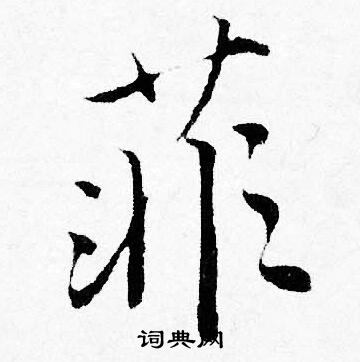 菲
词典网